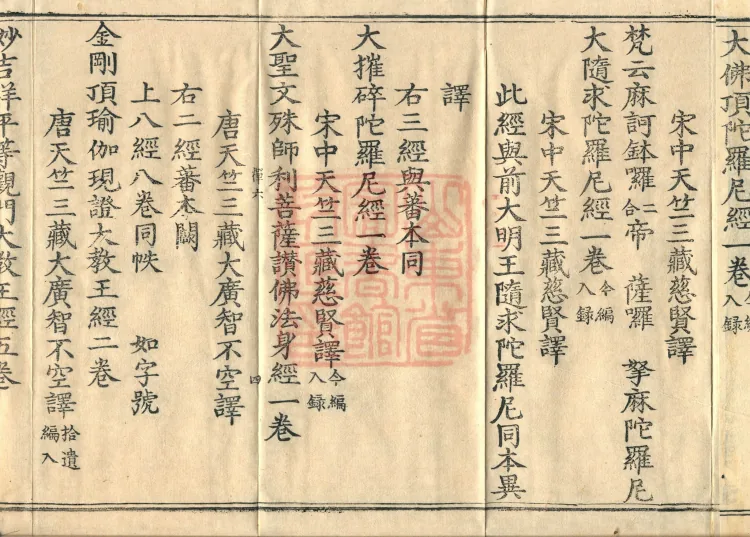 大佛頂陀羅尼經一卷 入録
宋中天竺三藏慈賢譯
梵云麻訶鉢囉二合帝 薩囉 拏麻陀羅尼
大隨求陀羅尼經一卷 今編入録
宋中天竺三藏慈賢譯
此經與前大明王隨求陀羅尼同本異
譯
右三經與蕃本同
大摧碎陀羅尼經一卷
宋中天竺三藏慈賢譯 今編入録
大聖文殊師利菩薩讃佛法身經一卷
六 四
唐天竺三藏大廣智不空譯
右二經蕃本闕
上八經八卷同帙 如字號
金剛頂瑜伽現證大教王經二卷
唐天竺三藏大廣智不空譯 拾遺編入
妙吉祥平等觀門大教王經五卷